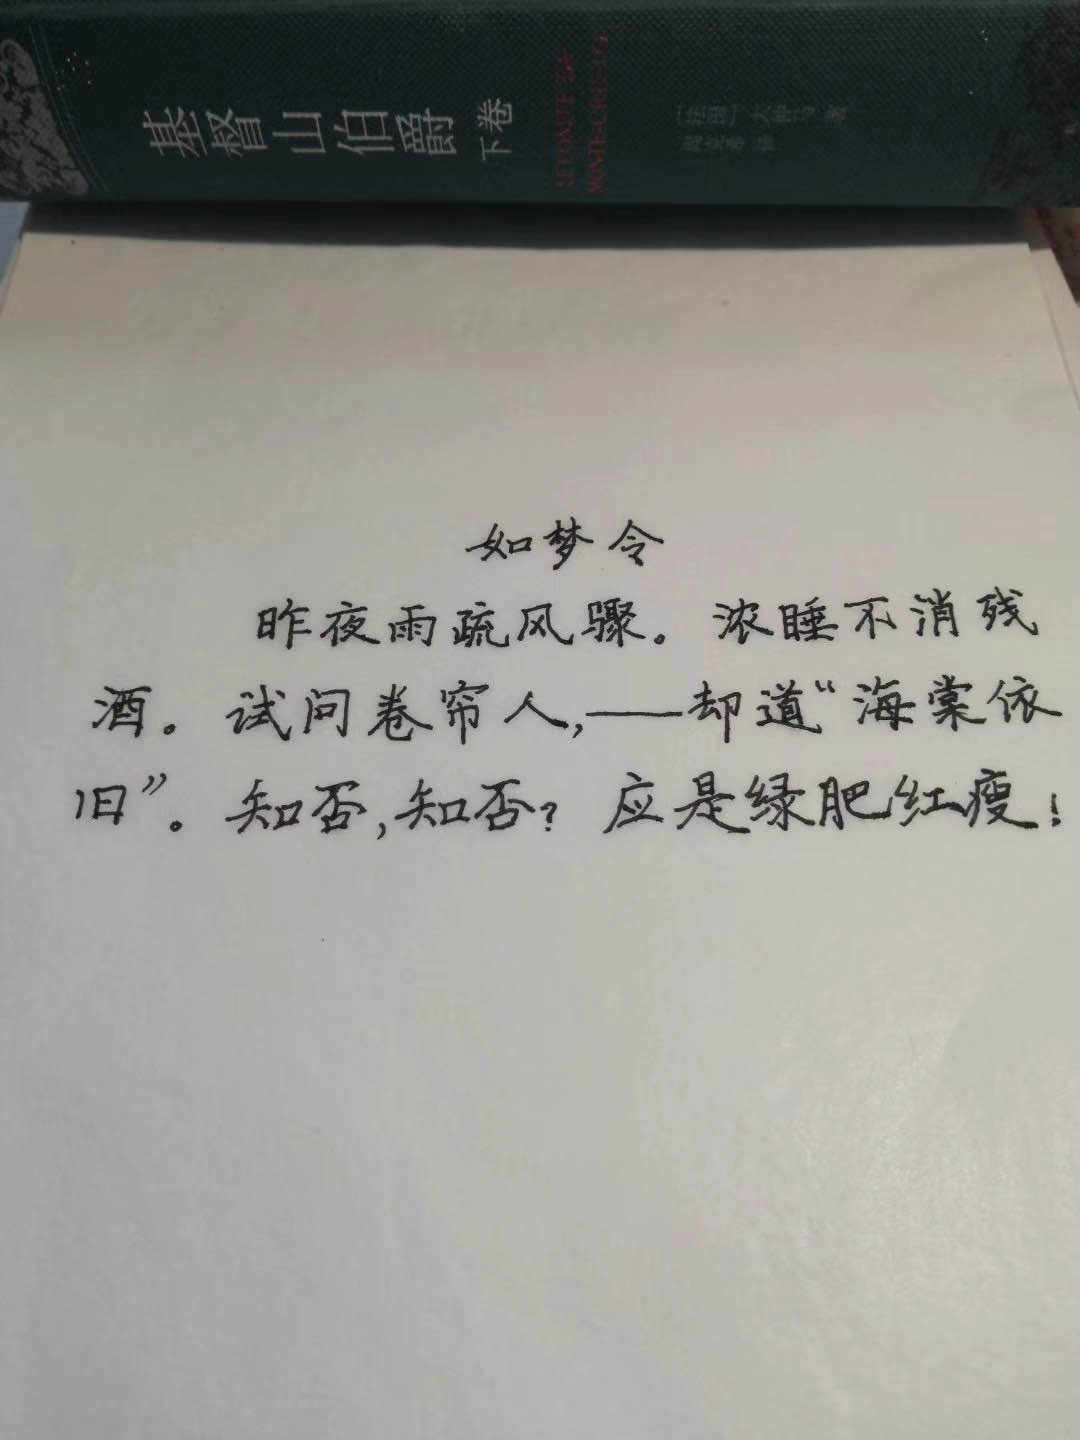 基督山伯爵 下卷
LE COMTE DE
MONTE-CRISTO
[法国] 大仲马 著
如梦令
昨夜雨疏风骤。浓睡不消残
酒。试问卷帘人,——却道“海棠依
旧”。知否,知否?应是绿肥红瘦!